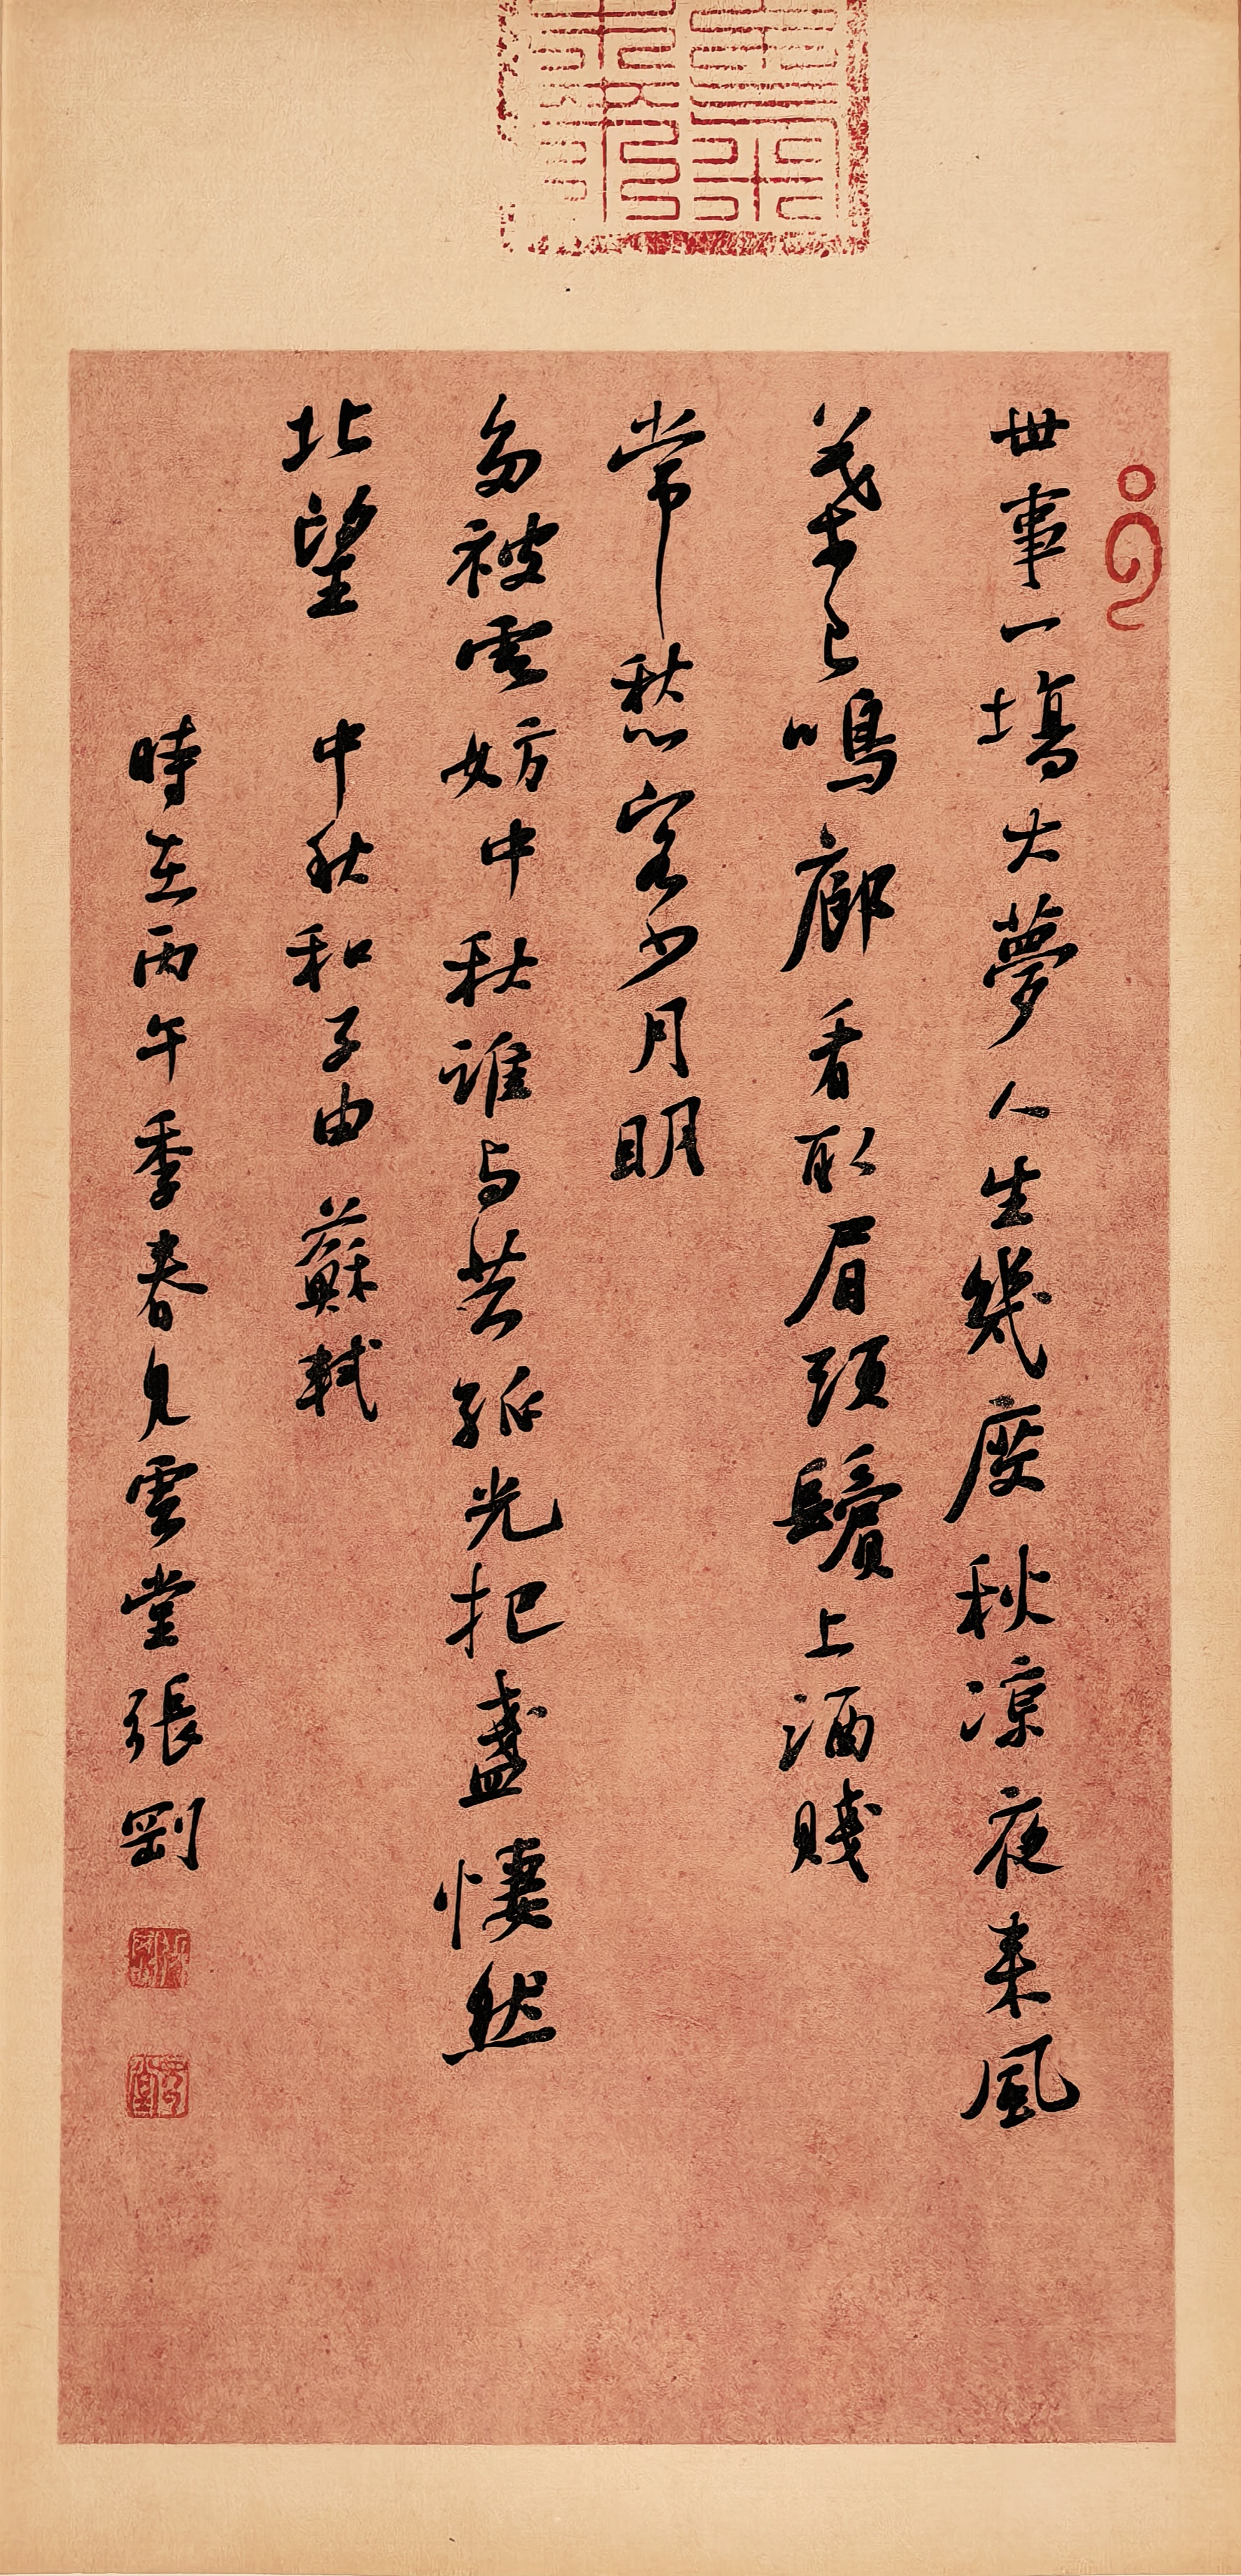 世事一塲大夢人生幾度秋涼夜来風
葉已鳴廊看取眉頭鬢上酒賤
常愁客少月明
多被雲妨中秋誰与共孤光把盞悽然
北望 中秋和子由 蘇軾
時在丙午季春見雲堂張剛